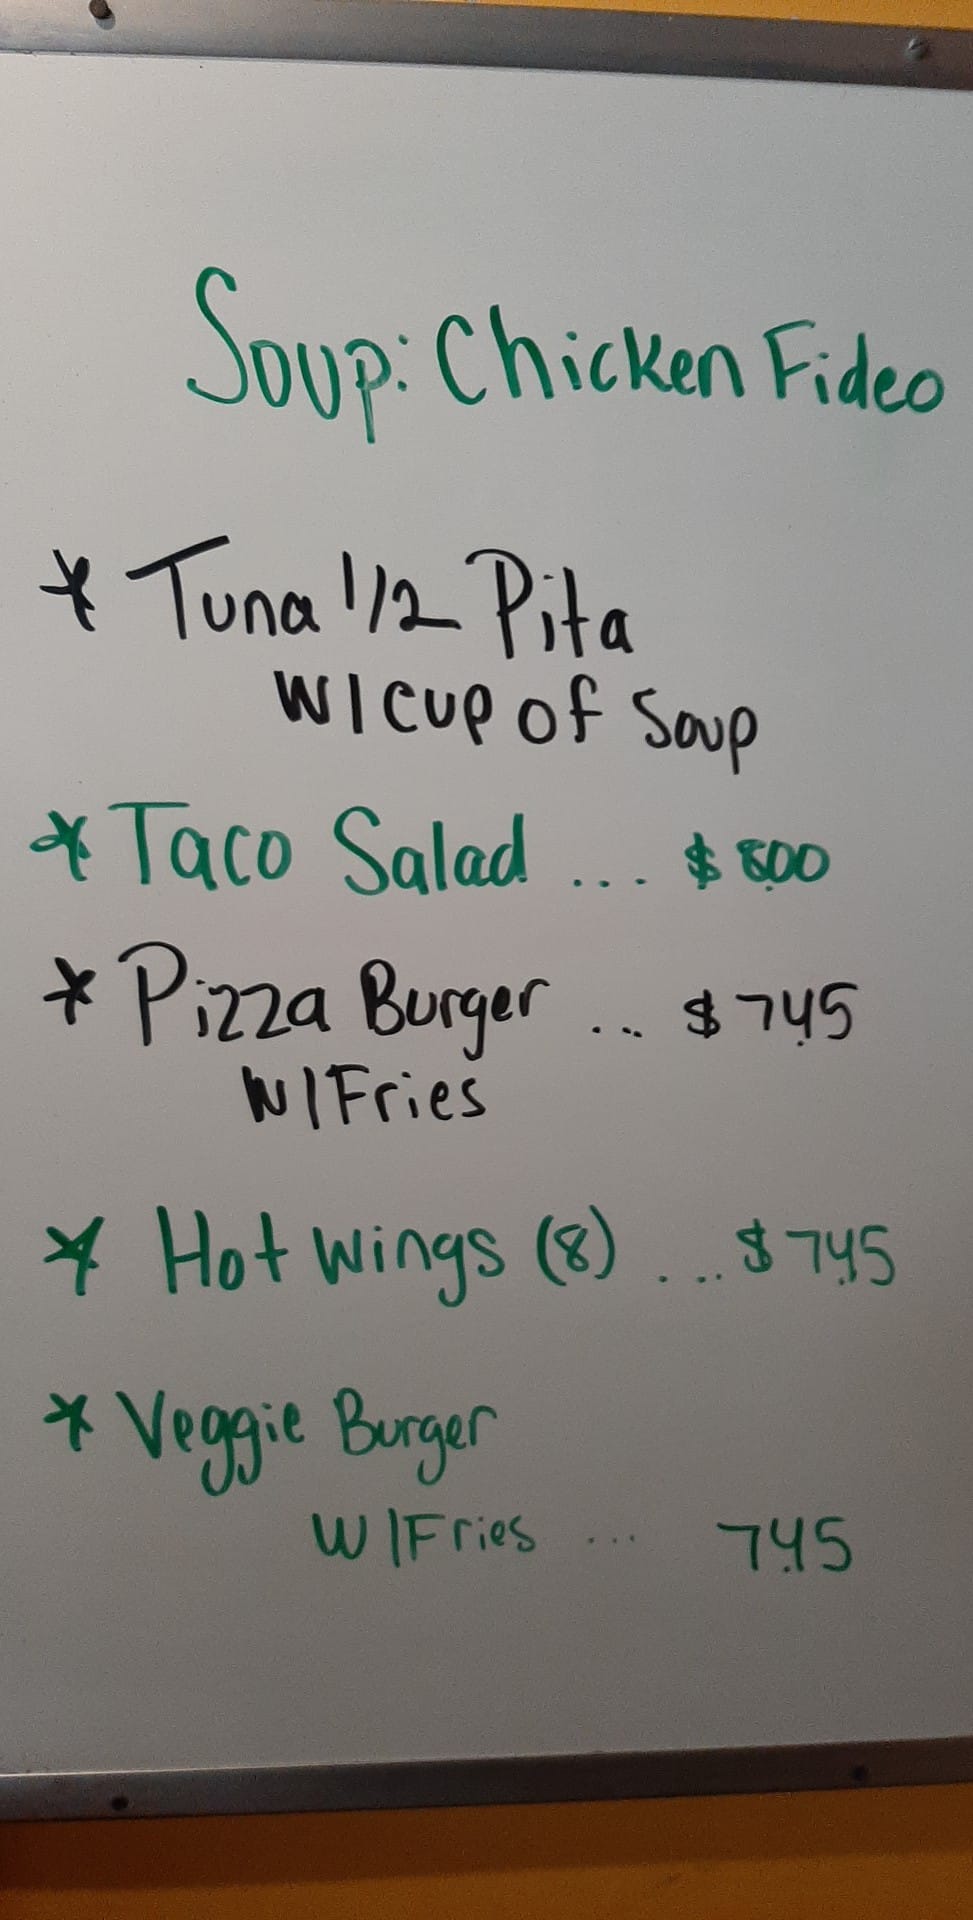 Soup: Chicken Fideo
* Tuna 1/2 Pita
W/cup of Soup
* Taco Salad ... $ 8.00
* Pizza Burger ... $ 7.45
W/Fries
* Hot Wings (8) ... $ 7.45
* Veggie Burger
W/Fries ... 7.45